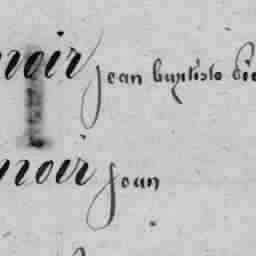 noir jean baptiste
noir jean